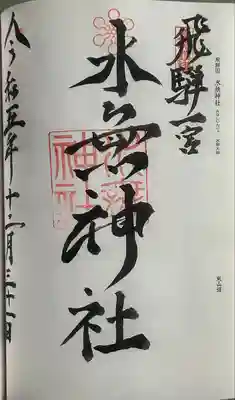 飛騨國 水無神社
東山道
飛騨一宮
水無神社
水無神社
令和五年十二月三十一日